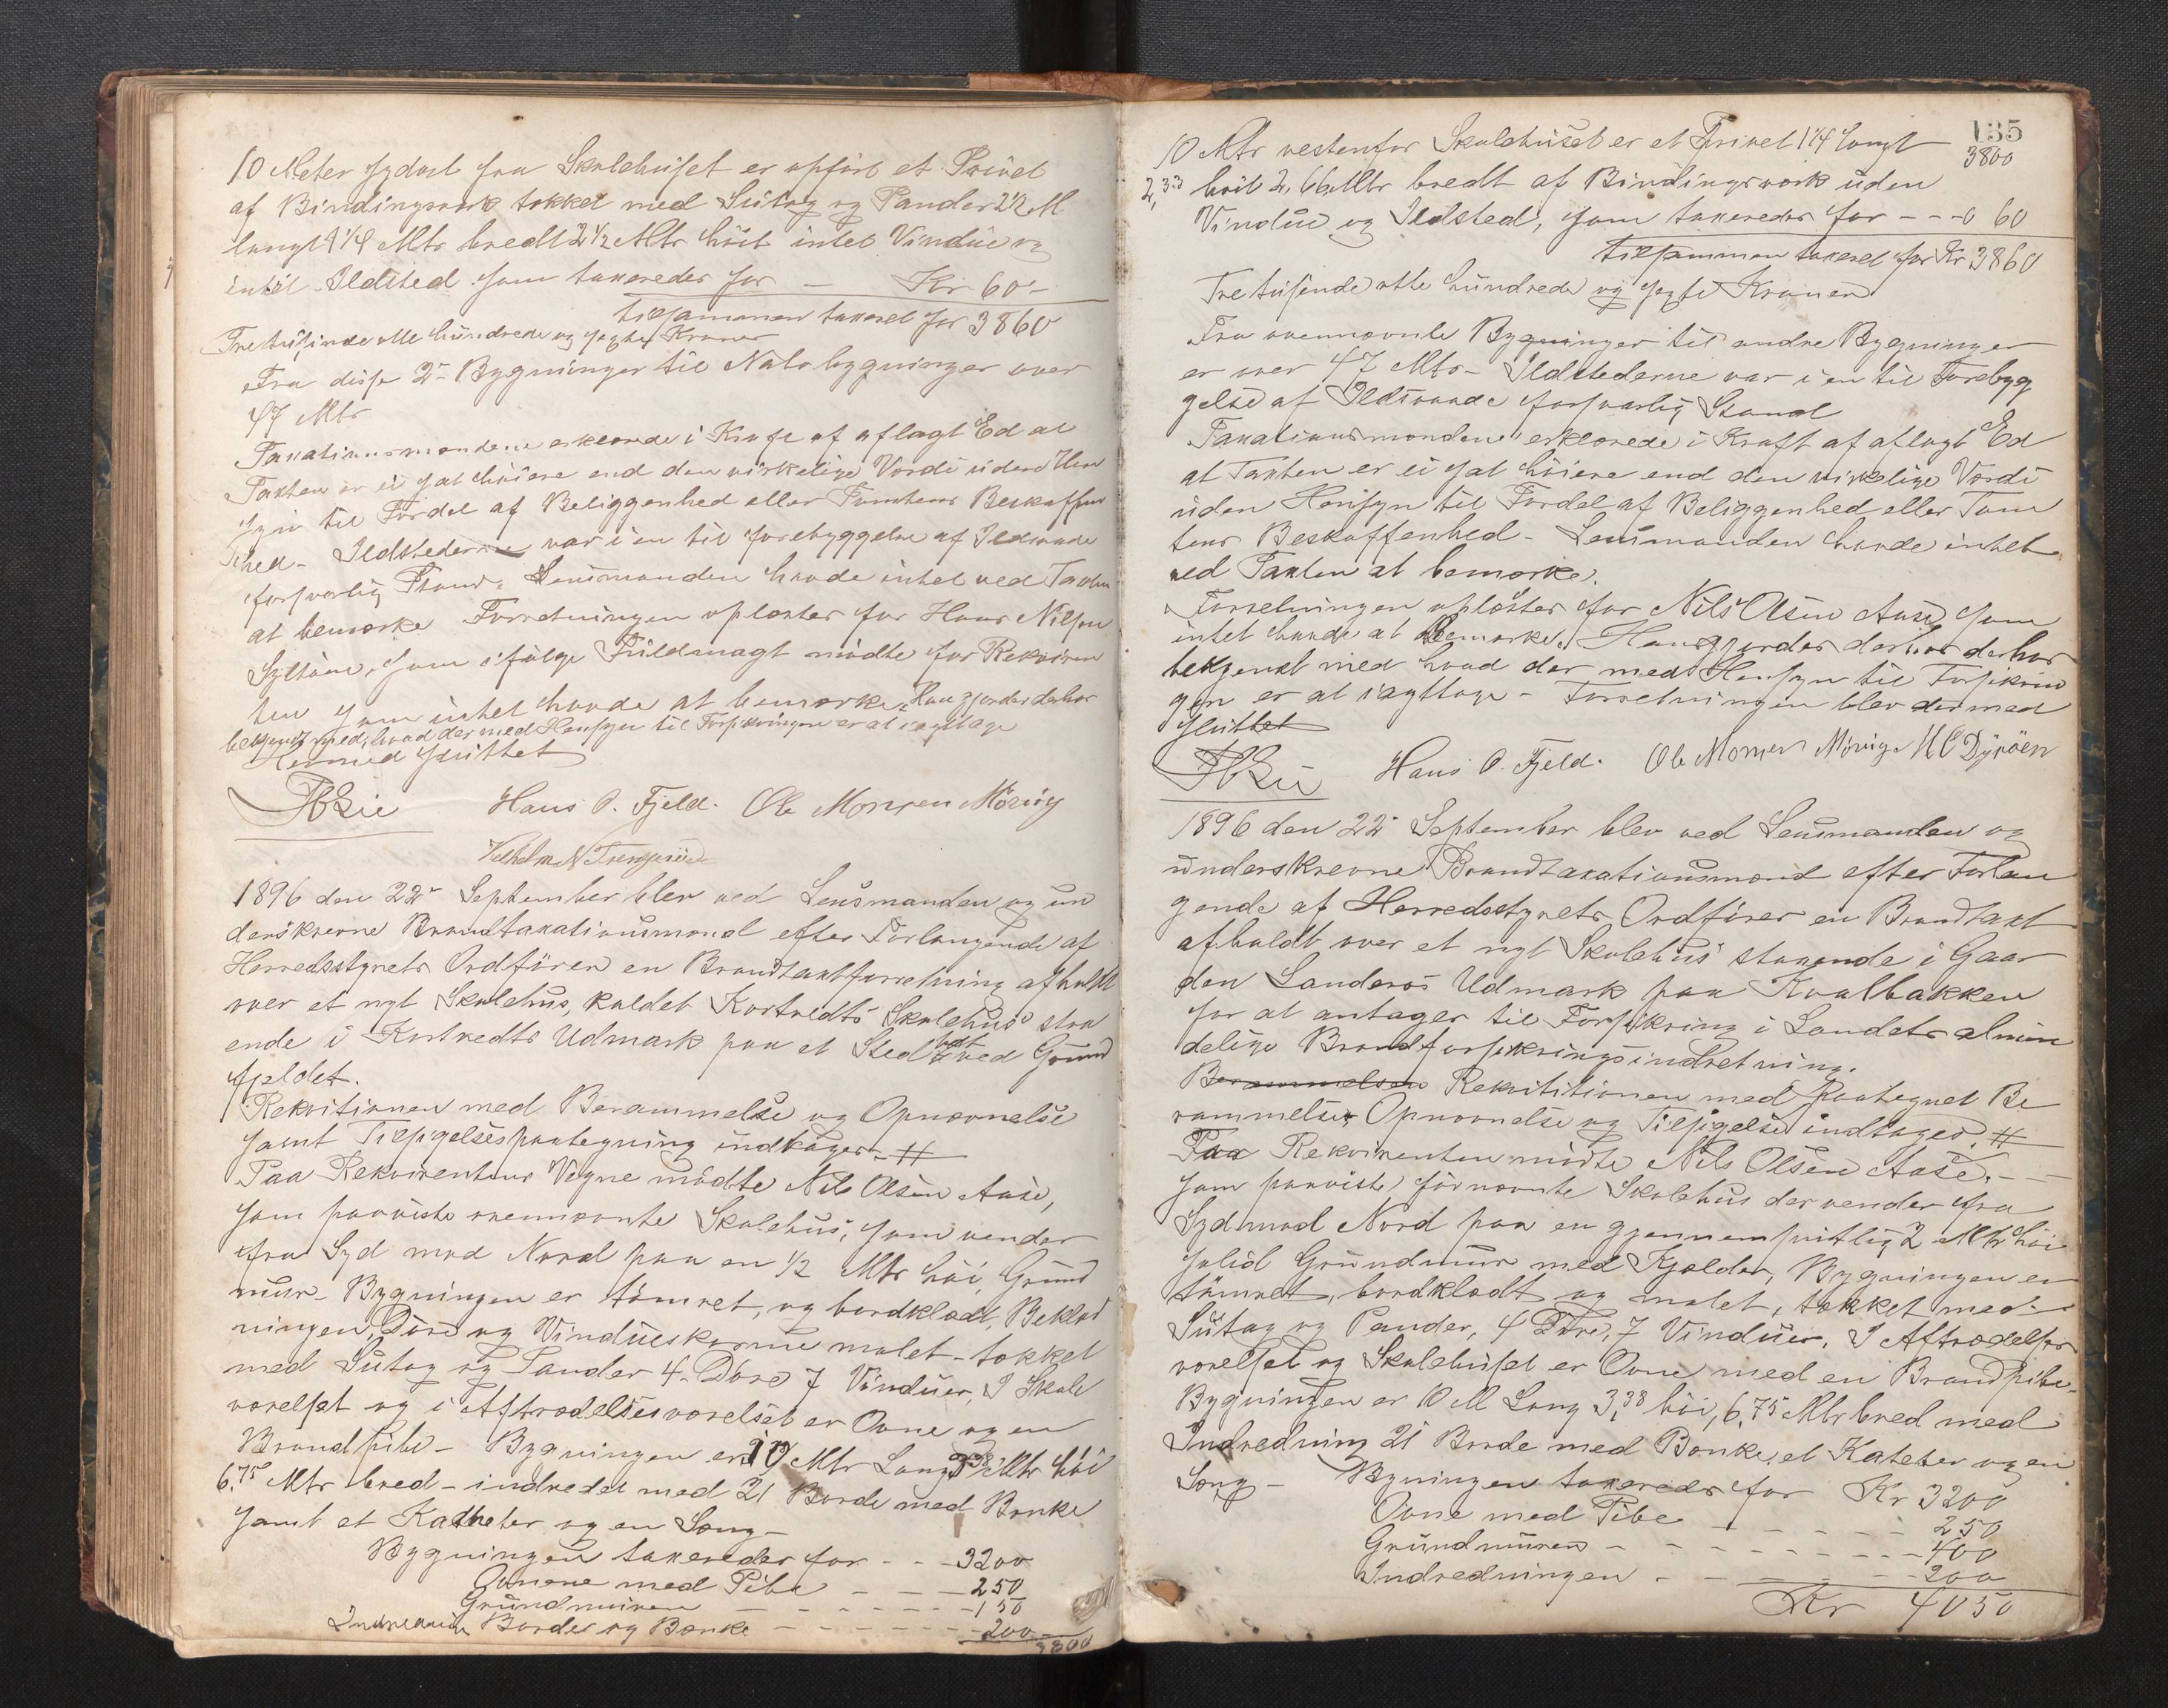 10 Meter sydost fra Skolehuset er opført et Privet
af Bindingsværk tækket med Sutag og Pander 2 1/2 M
langt 1 1/4 Mtr bredt 2 1/2 Mtr høit intet Vindue og
intet Ildsted som taxeredes for — Kr 60 –
tilsammen taxeret for 3860
Tretusinde otte hundrede og segsti Kroner
Fra disse 2de Bygninger til Nabobygninger over
47 Mtr
Taxationsmændene erklærede i Kraft af aflagt Ed at
Taxten er ei sat høiere end den virkelige Værdi uden Hen
syn til Fordel af Beliggenhed eller Tomtens Beskaffen
hed – Ildstederne var i en til forebyggelse af Ildsvaade
forsvarlig Stand. Lensmanden havde intet ved Taxten
at bemærke Forretningen oplæstes for Hans Nilsen
som ifølge Fuldmagt mødte for Rekviren
ten som intet havde at bemærke. Han gjordes derhos
bekjendt med, hvad der med Hensyn til Forsikringen er at iagttage
Hermed sluttet
Hans O. Fjeld. Ole Monsen Mövig
1896 den 22de September blev ved Lensmanden og un
derskrevne Brandtaxationsmænd efter Forlangende af
Herredsstyrets Ordfører en Brandtaxtforretning afholdt
over et nyt Skolehus, kaldet Kortvedts Skolehus staa
ende i Kortvedts Udmark paa et Sted kaldt ved Grund
fjeldet.
Rekvisitionen med Berammelse og Opnævnelse
samt Tilsigelsespaategning indtages. #
Paa Rekvirentens Vegne mødte Nils Olsen Aase,
som paaviste ovennævnte Skolehus, som vender
fra Syd mod Nord paa en 1/2 Mtr høi Grund
mur – Bygningen er tømret, og bordklædt, Beklæd
ningen, Døre og Vindueskarme malet – tækket
med Sutag og Pander 4 Døre 7 Vinduer, I Skole
værelset og i Aftrædelsesværelset er Ovne og en
Brandpibe – Bygningen er 10 Mtr Lang 3,38 Mtr høi
6,75 Mtr bred – indredet med 21 Borde med Bænke
samt et Katheter og en Seng –
Bygningen taxeredes for - - - 3200
Ovnene med Pibe - - - 250
Grundmuren - - - - - - 150
Indredning Borde og Bænke - - - - - - 200
3800
135
10 Mtr vestenfor Skolehuset er et Privet 1 1/4 langt 3800
2,33 høit 2,66 Mtr bredt af Bindingsværk uden
Vindue og Ildsted, som taxeredes for - - - 60
tilsammen taxeret for Kr 3860
Tretusinde otte hundrede og segsti Kroner
Fra ovennævnte Bygninger til andre Bygninger
er over 47 Mtr – Ildstederne var i en til Forebyg
gelse af Ildsvaade forsvarlig Stand
Taxationsmændene erklærede i Kraft af aflagt Ed
at Taxten er ei sat høiere end den virkelige Værdi
uden Hensyn til Fordel af Beliggenhed eller Tom
tens Beskaffenhed – Lensmanden havde intet
ved Taxten at bemærke.
Forretningen oplæstes for Nils Olsen Aase, som
intet havde at bemærke. Han gjordes derhos derhos
bekjendt med hvad der med Hensyn til Forsikrin
gen er at iagttage – Forretningen blev dermed
sluttet
Hans O. Fjeld. Ole Monsen Mövig N C Dyröen
1896 den 22de September blev ved Lensmanden og
underskrevne Brandtaxationsmænd efter Forlan
gende af Herredsstyrets Ordfører en Brandtaxt
afholdt over et nyt Skolehus staaende i Gaar
den Landeros Udmark paa Kvalbakken
for at antages til Forsikring i Landets almin
delige Brandforsikringsindretning.
Berammelsen Rekvisitionen med paategnet Be
rammelse, Opnævnelse og Tilsigelse indtages. #
Paa Rekvirenten mødte Nils Olsen Aase. –
som paaviste førnævnte Skolehus der vender fra
Syd mod Nord paa en gjennemsnitlig 2 Mtr høi
solid Grundmur med Kjælder, Bygningen er
tømret, bordklædt og malet, tækket med
Sutag og Pander, 4 Døre, 7 Vinduer. I Aftrædelses
værelset og Skolehuset er Ovne med en Brandpibe.
Bygningen er 10 M Lang 3,38 høi, 6,75 Mtr bred med
Indredning 21 Borde med Bænke, et Kateter og en
Seng – Bygningen taxeredes for Kr 3200
Ovne med Pibe - - - - - 250
Grundmuren - - - - - - - - 400
Indredningen - - - - - 200
Kr 4050